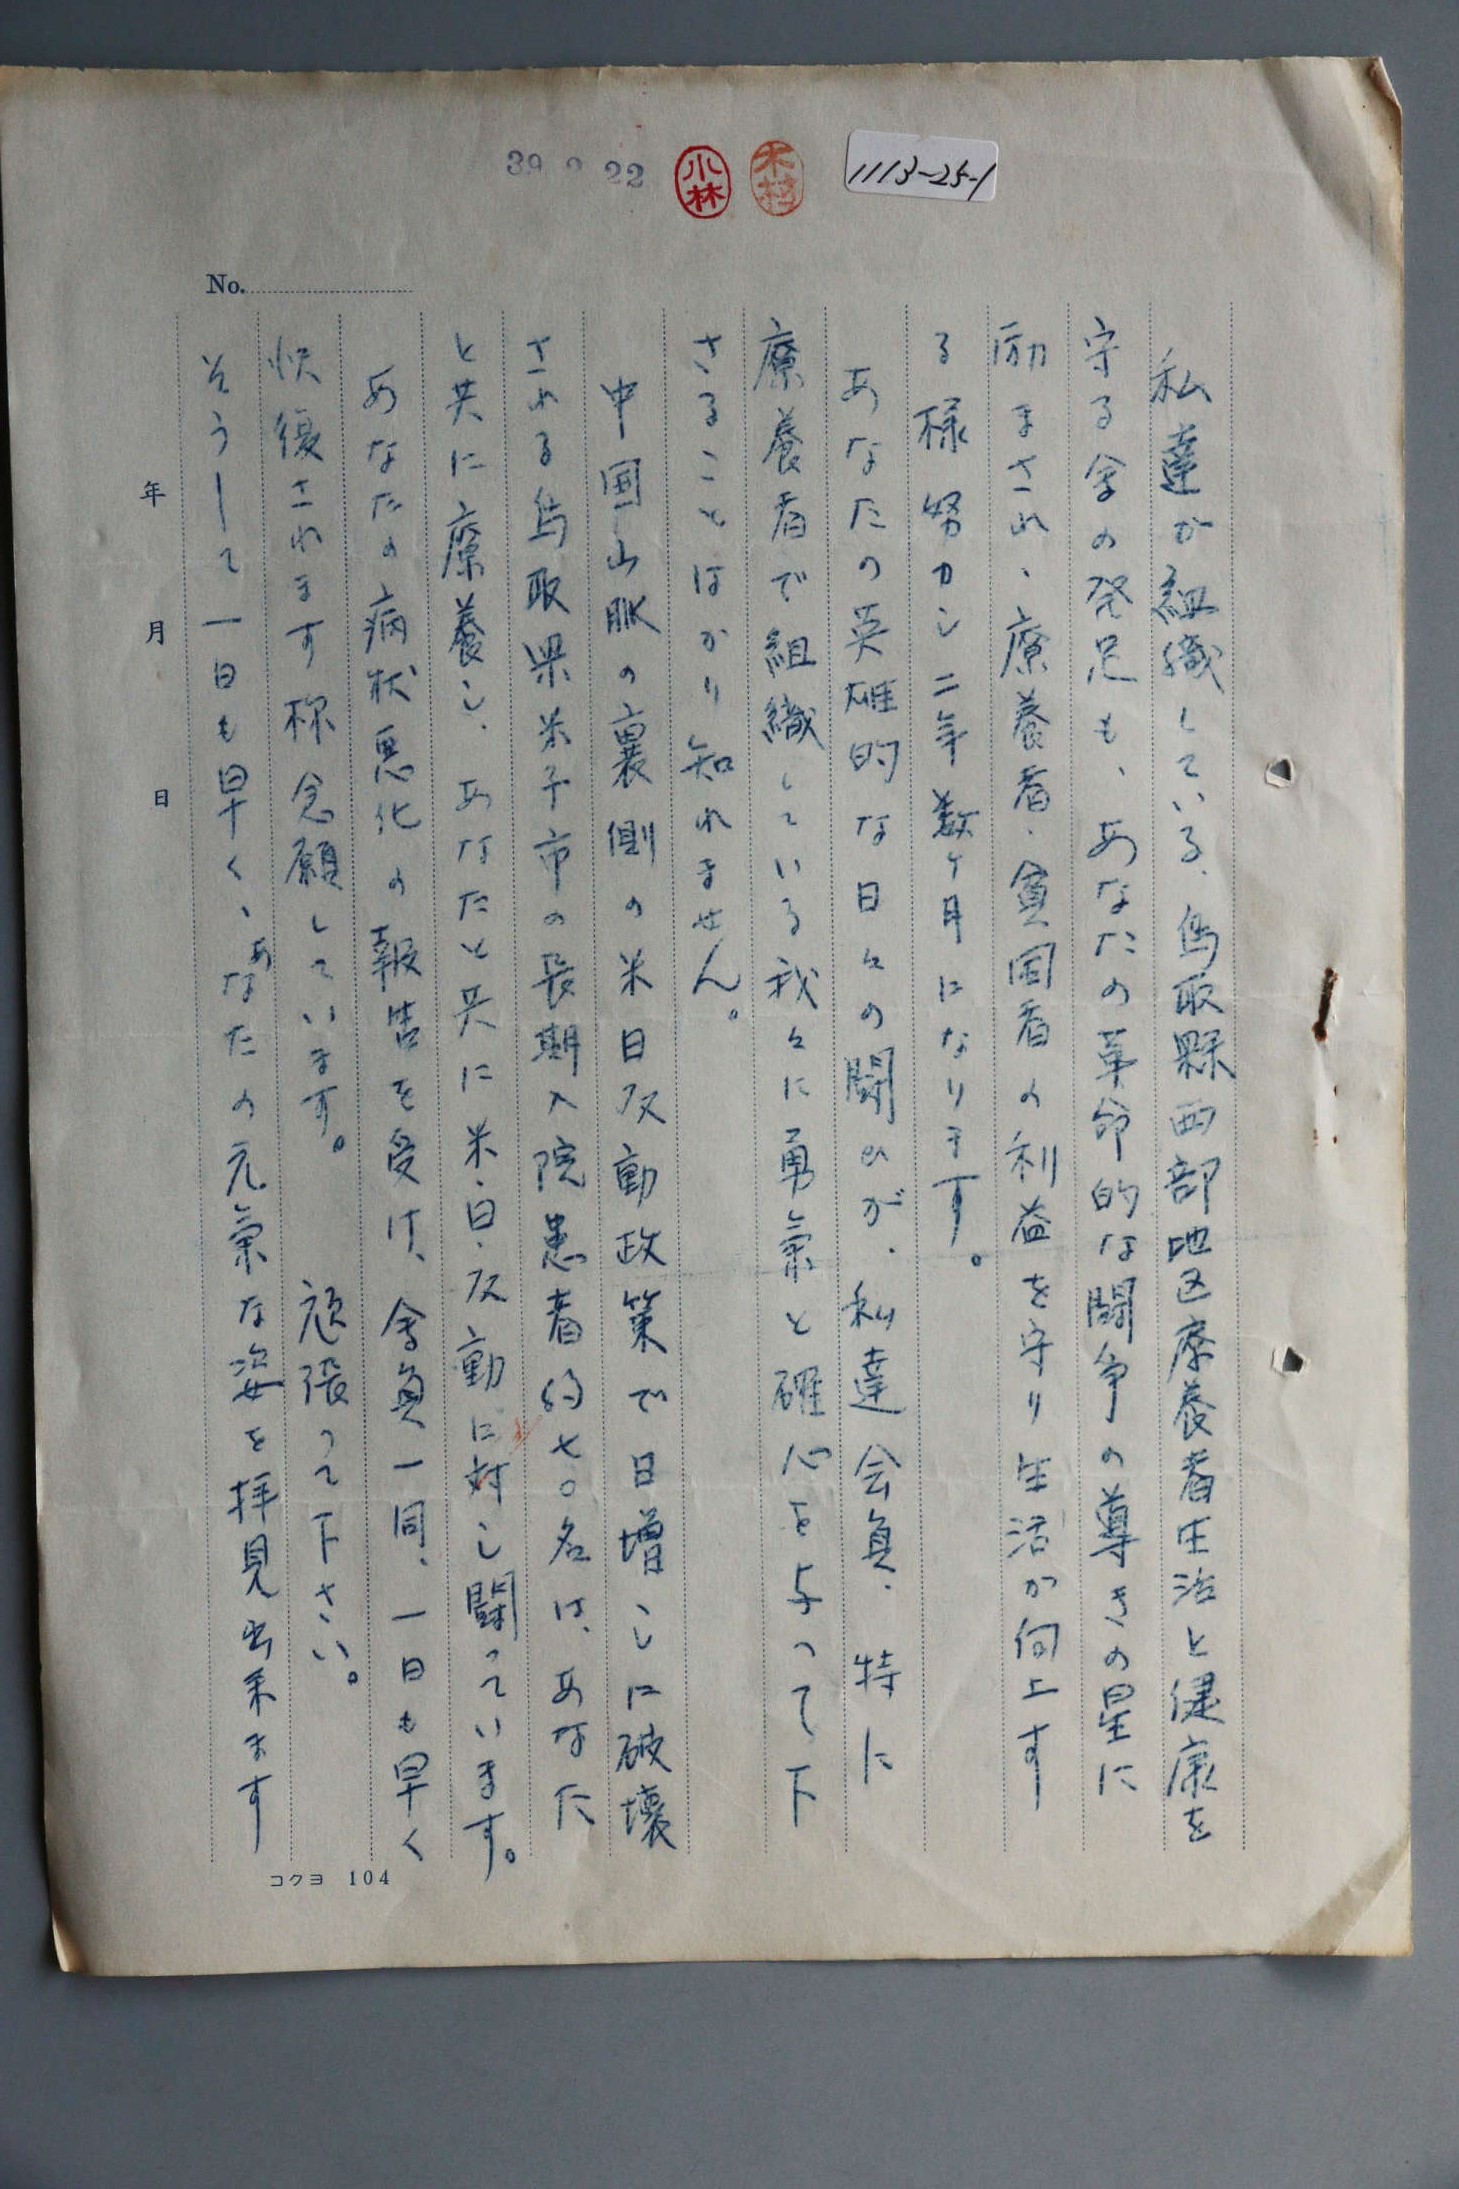 39 2 22
小林
木村
1113-25-1
No.
私達が組織している、鳥取縣西部地区療養者生活と健康を
守る会の発足も、あなたの革命的な闘争の尊きの星に
励まされ、療養者、貧困者の利益を守り生活が向上す
る様努力し二年数ヶ月になります。
あなたの英雄的な日々の闘いが、私達会員、特に
療養者で組織している我々に勇氣と確心を与って下
さることはかり知れません。
中国山脈の裏側の米日反動政策で日増しに破壊
される鳥取県米子市の長期入院患者約七〇名は、あなた
と共に療養し、あなたと共に米、日、反動に対し闘っています。
あなたの病状悪化の報告を受け、会員一同、一日も早く
恢復されます様念願しています。 頑張って下さい。
そうして一日も早く、あなたの元氣な姿を拝見出来ます
年 月 日
コクヨ 104